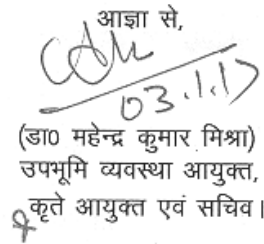 आज्ञा से,
03.1.17
(डा0 महेन्द्र कुमार मिश्रा)
उपभूमि व्यवस्था आयुक्त,
कृते आयुक्त एवं सचिव।